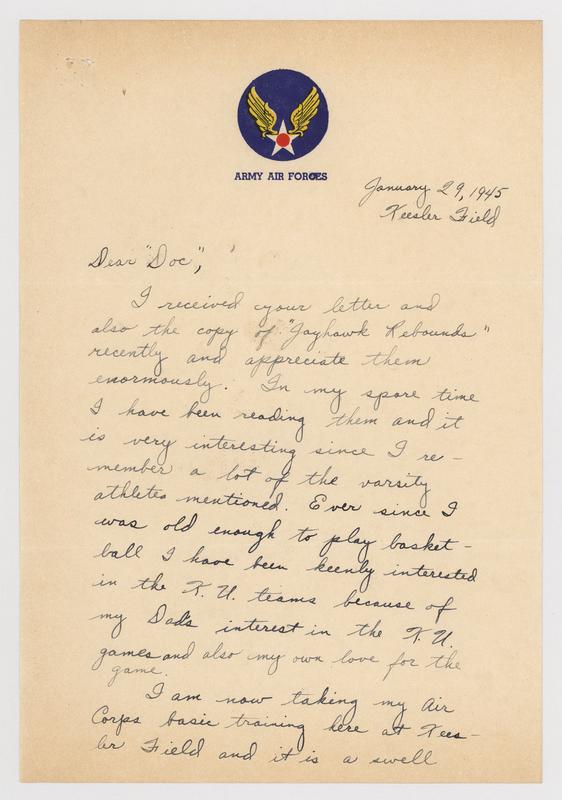 ARMY AIR FORCES
January 29, 1945
Keesler Field
Dear "Doc",
I received your letter and
also the copy of "Jayhawk Rebounds"
recently and appreciate them
enormously. In my spare time
I have been reading them and it
is very interesting since I re-
member a lot of the varsity
athletes mentioned. Ever since I
was old enough to play basket-
ball I have been keenly interested
in the K.U. teams because of
my Dad's interest in the K.U.
games and also my own love for the
game.
I am now taking my Air
Corps basic training here at Kees-
ler Field and it is a swell